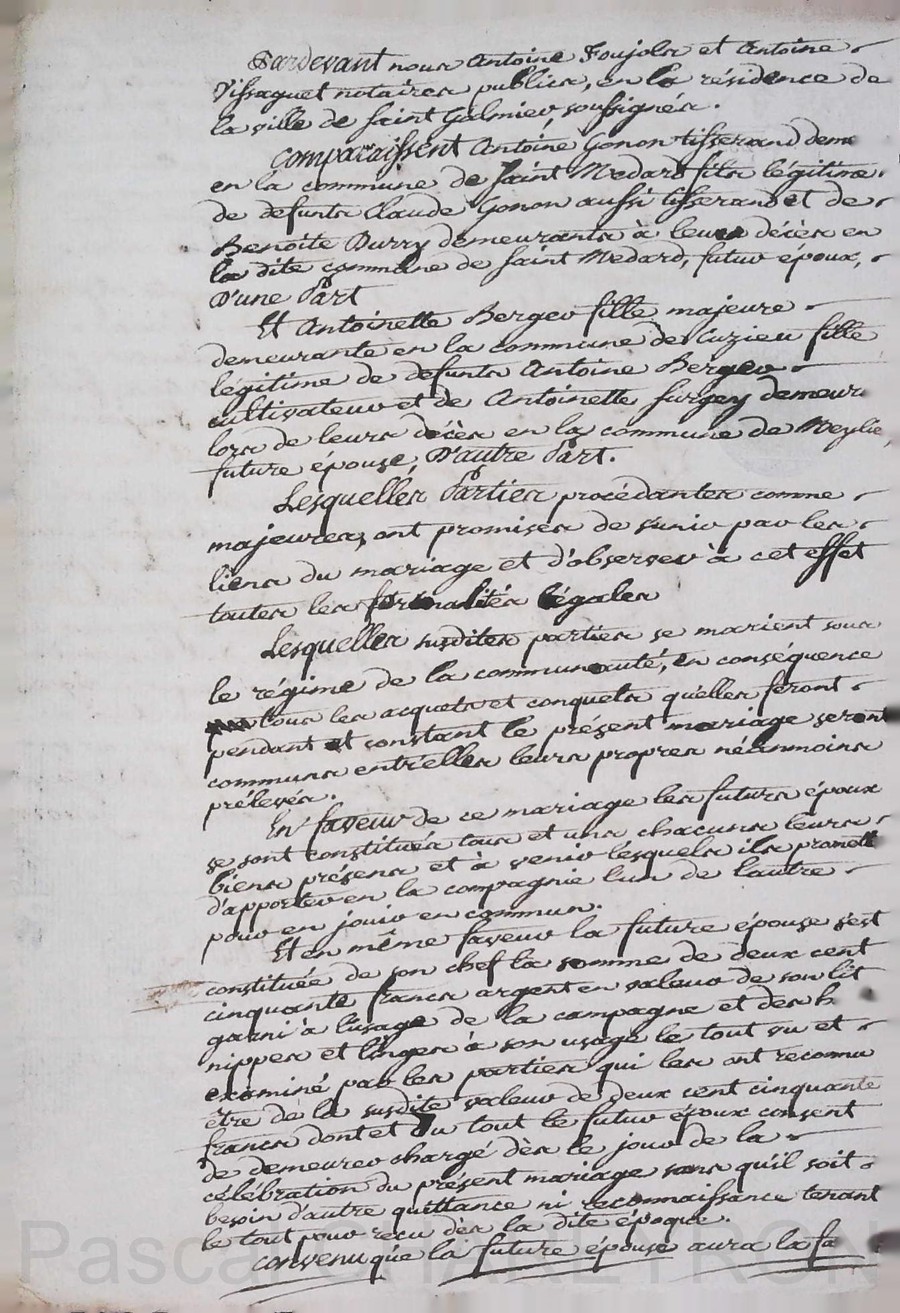 Pardevant nous Antoine Foujols et Antoine
Vissaguet notaires publics, en la résidence de
la ville de Saint Galmier, soussignés.
Comparaissent Antoine Gonon tisserand deme
en la commune de Saint Medard fils légitime
de defunts Claude Gonon aussi tisserand et de
Benoite Durry demeurants à leurs décès en
la dite commune de Saint Medard, futur époux,
D'une Part
Et Antoinette Berger fille majeure
demeurante en la commune de Cuzieu fille
légitime de defunts Antoine Berger
cultivateur et de Antoinette Surgey demeur
lors de leurs décès en la commune de
future épouse, D'autre Part.
Lesquelles Parties procédantes comme
majeures, ont promises de s'unir par les
liens du mariage et d'observer à cet effet
toutes les formalités légales
Lesquelles susdites parties se marient sous
le régime de la communauté, en conséquence
tous les acquets et conquets qu'elles feront
pendant et constant le présent mariage seront
communs entr'elles leurs propres néanmoins
prélevés.
En faveur de ce mariage les futurs époux
se sont constitués tous et uns chacuns leurs
biens présens et à venir lesquels ils promett
d'apporter en la compagnie l'un de l'autre
pour en jouir en commun.
Et en même faveur la future épouse s'est
constituée de son chef la somme de deux cent
cinquante francs argent en valeur de son lit
garni à l'usage de la campagne et des h
nippes et linges à son usage le tout vu et
examiné par les parties qui les ont reconnu
être de la susdite valeur de deux cent cinquante
francs dont et du tout le futur époux consent
de demeurer chargé dès le jour de la
célébration du présent mariage sans qu'il soit
besoin d'autre quittance ni reconnaissance tenant
le tout pour reçu dès la dite époque.
convenu que la future épouse aura la fa
Pascal CHAREYRON